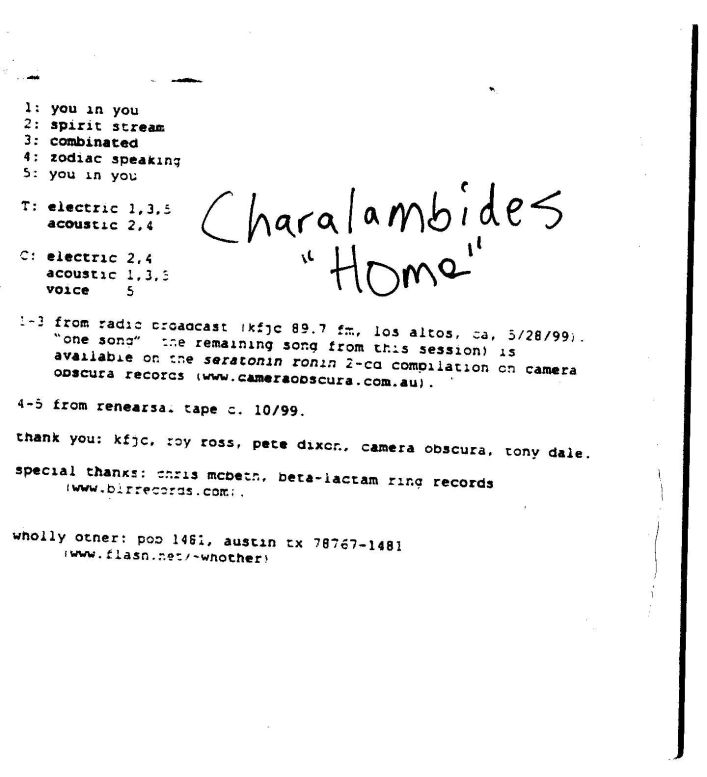 1: you in you
2: spirit stream
3: combinated
4: zodiac speaking
5: you in you
T: electric 1,3,5
acoustic 2,4
C: electric 2,4
acoustic 1,3,5
voice 5
Charalambides
"Home"
1-3 from radio broadcast (kfjc 89.7 fm, los altos, ca, 5/28/99).
"one song" the remaining song from this session) is
available on the seratonin ronin 2-cd compilation on camera
obscura records (www.cameraobscura.com.au).
4-5 from rehearsal tape c. 10/99.
thank you: kfjc, roy ross, pete dixon, camera obscura, tony dale.
special thanks: chris mcbeth, beta-lactam ring records
(www.blrrecords.com).
wholly other: pob 1481, austin tx 78767-1481
(www.flash.net/~whother)